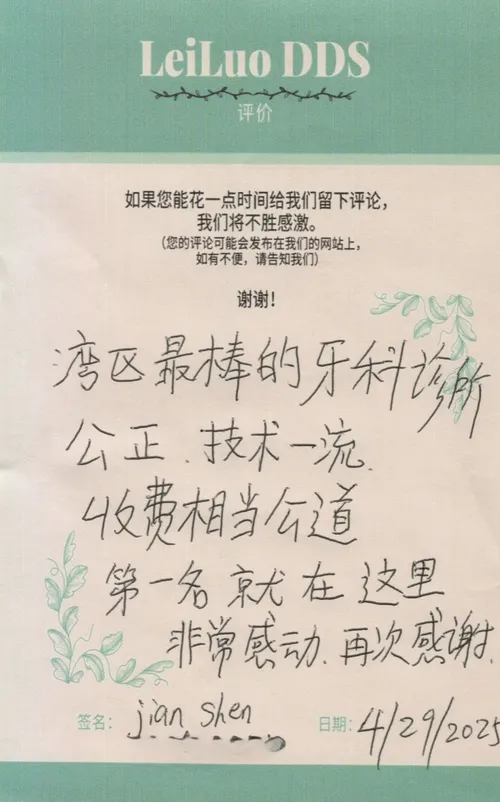 LeiLuo DDS
评价
如果您能花一点时间给我们留下评论，
我们将不胜感激。
（您的评论可能会发布在我们的网站上，
如有不便，请告知我们）
谢谢！
湾区最棒的牙科诊所
公正、技术一流、
收费相当公道
第一名就在这里
非常感动、再次感谢、
签名： jian shen 日期： 4/29/2025